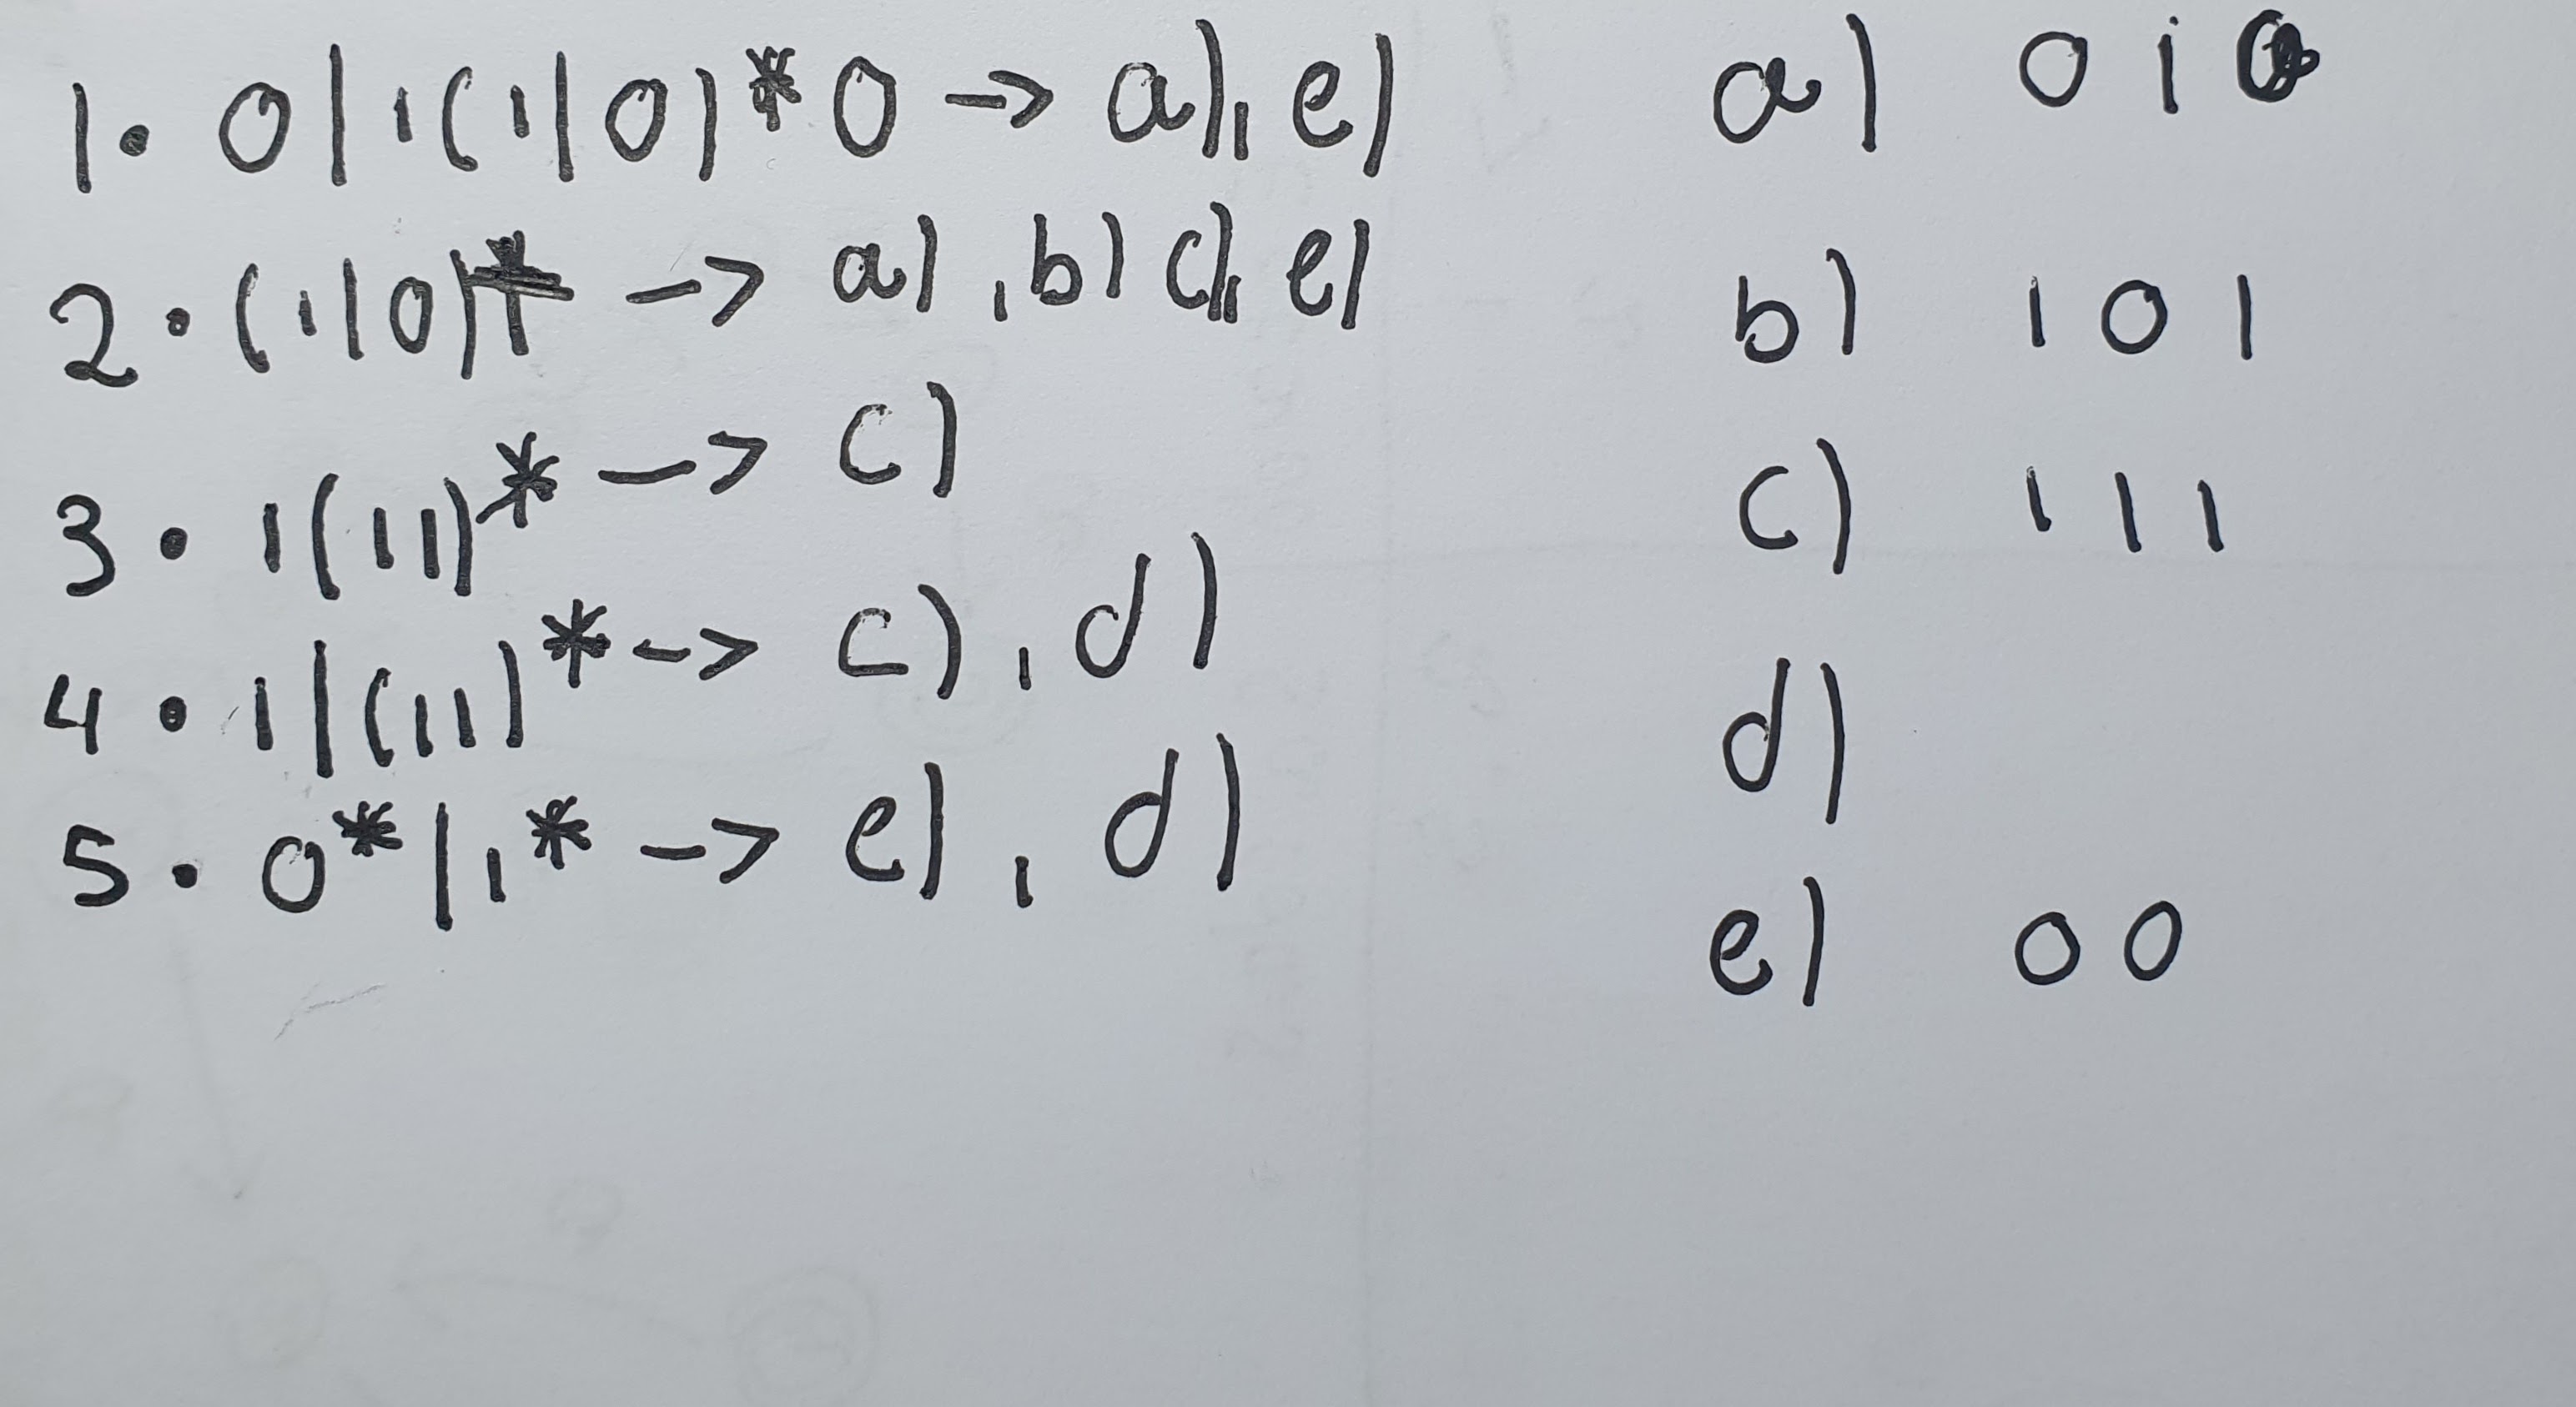 1. 0|1(1|0)*0 -> a), e)
2. (1|0)* -> a), b) c), e)
3. 1(11)* -> c)
4. 1|(11)* -> c), d)
5. 0*|1* -> e), d)
a) 010
b) 101
c) 111
d)
e) 00